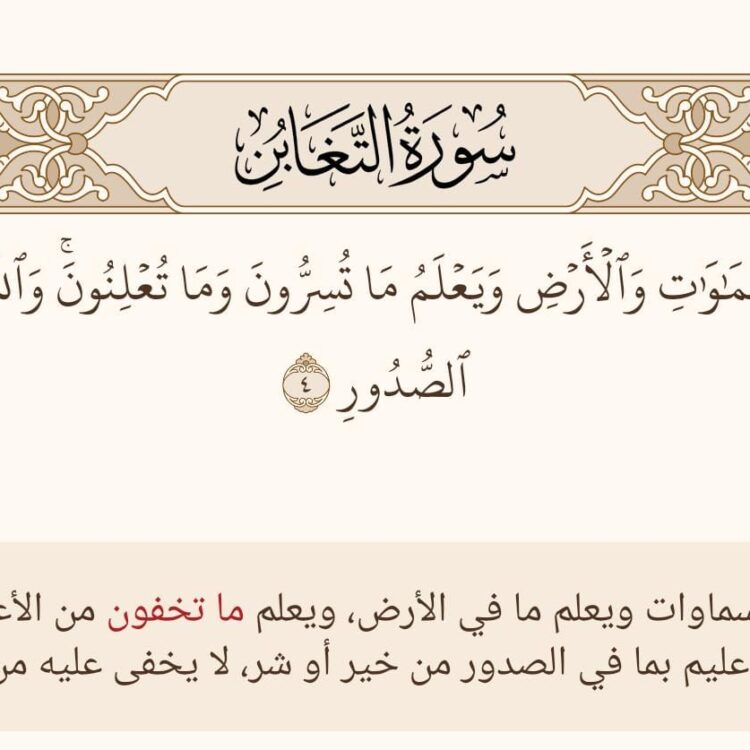 سُورَةُ التَّغَابُنِ
ـمَـٰوَٰتِ وَٱلْأَرْضِ وَيَعْلَمُ مَا تُسِرُّونَ وَمَا تُعْلِنُونَ ۚ
ٱلصُّدُورِ ٤
سماوات ويعلم ما في الأرض، ويعلم ما تخفون من
عليم بما في الصدور من خير أو شر، لا يخفى عليه